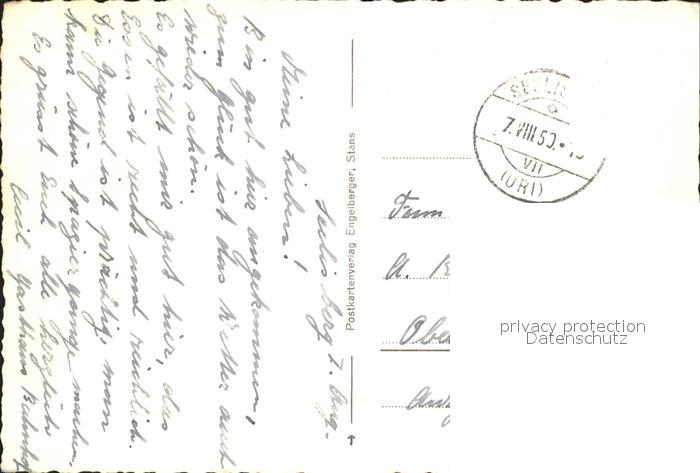 Seelisberg 7. Aug.
Meine Lieben!
Bin gut hier angekommen,
zum Glück ist das Wetter auch
wieder schön.
Es gefällt mir gut hier, das
Essen ist recht und reichlich.
Die Gegend ist prächtig, man
kann schöne Spaziergänge machen.
Es grüsst Euch alle herzlich
Gasthaus Bahnhof
Postkartenverlag Engelberger, Stans
SEELIS
7.VIII.50.-1
VII
(URI)
Fam
A.
Obe
privacy protection
Datenschutz